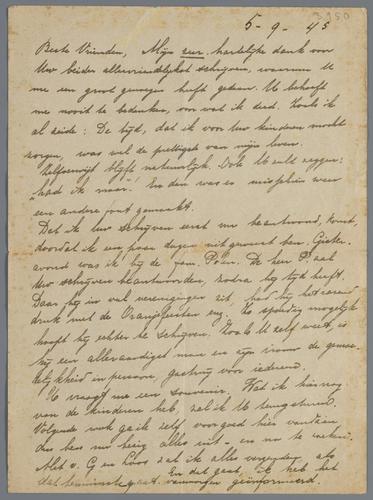 5-9-45
Beste Vrienden, Mijn zeer hartelijke dank voor
Uw beider allervriendelijkst schrijven, waarmee U
me een groot genoegen heeft gedaan. U behoeft
me nooit te bedanken, voor wat ik deed. Zoals ik
al zeide: De tijd, dat ik voor Uw kinderen mocht
zorgen, was wel de prettigste van mijn leven.
Zelfverwijt blijft natuurlijk. Ook U zult zeggen:
"had ik maar." En dan was er misschien weer
een andere fout gemaakt.
Dat ik Uw schrijven eerst nu beantwoord, komt,
doordat ik een paar dagen uit geweest ben. Gister-
avond was ik bij de fam. Pöen. De heer P. zal
Uw schrijven beantwoorden, zodra hij tijd heeft.
Daar hij in veel verenigingen zit, had hij het razend
druk met de Oranjefeesten enz. Zo spoedig mogelijk
hoopt hij echter te schrijven. Zoals U zelf weet, is
hij een alleraardigst man en zijn vrouw de gemoe-
delijkheid in persoon, gastvrij voor iedereen.
U vraagt me een souvenir. Wat ik hier nog
van de kinderen heb, zal ik U terugsturen.
Volgende week ga ik zelf voorgoed hier vandaan
Ons huis nu nog alles uit- en na te
Met v. G en Loos zal ik alles verzenden, als
dat tenminste gaat. En dat gaat, ik heb het
vanmorgen geïnformeerd.